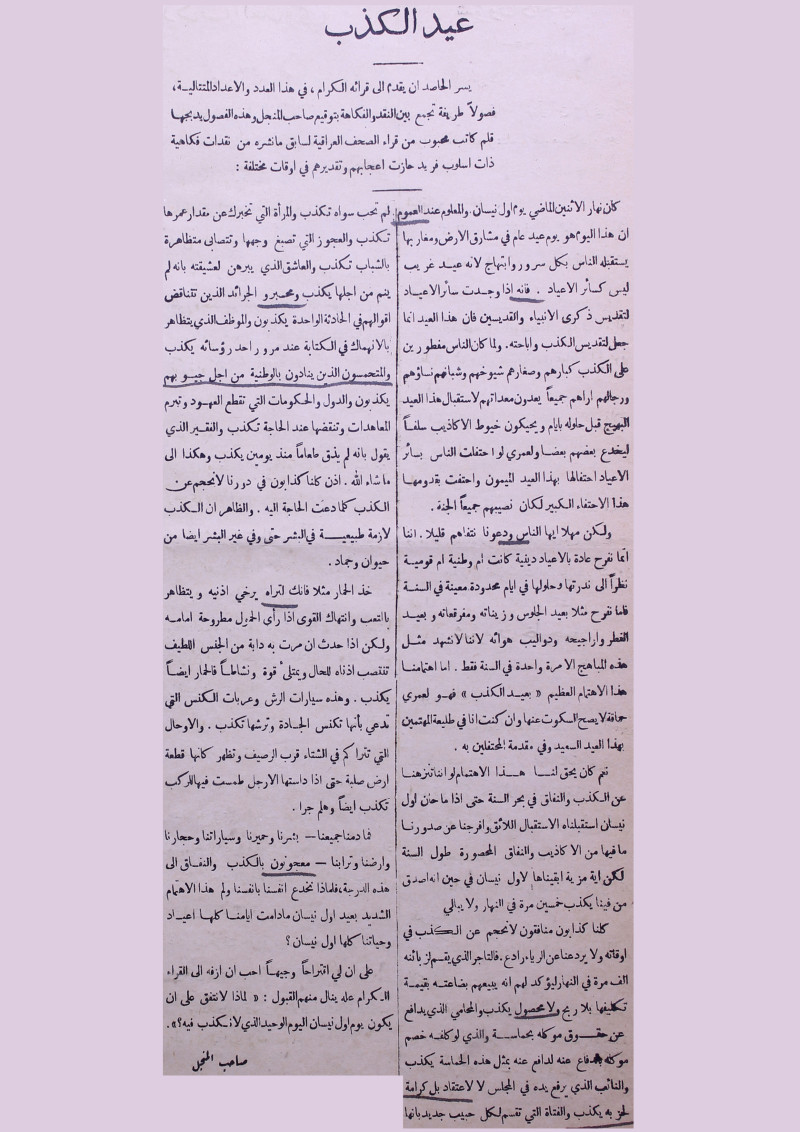 عيد الكذب
يسر الحاصد ان يقدم الى قرائه الكرام ، في هذا العدد والاعداد المتتالية ،
فصولاً طريفة تجمع بين النقد والفكاهة بتوقيع صاحب المنجل وهذه الفصول يدبجها
قلم كاتب محبوب من قراء الصحف العراقية لسابق ما نشره من نقدات فكاهية
ذات اسلوب فريد حازت اعجابهم وتقديرهم في اوقات مختلفة :
كان نهار الاثنين الماضي يوم اول نيسان . والمعلوم عند العموم
ان هذا اليوم هو يوم عيد عام في مشارق الارض ومغاربها
يستقبله الناس بكل سرور وابتهاج لانه عيد غريب
ليس كسائر الاعياد . فانه اذا وجدت سائر الاعياد
لتقديس ذكرى الانبياء والقديسين فان هذا العيد انما
جعل لتقديس الكذب واباحته . ولما كان الناس مفطورين
على الكذب كبارهم وصغارهم شيوخهم وشبانهم نساؤهم
ورجالهم اراهم جميعاً يعدون معداتهم لاستقبال هذا العيد
البهيج قبل حلوله بايام ويحيكون خيوط الاكاذيب سلفاً
ليخدع بعضهم بعضا ولعمري لو احتفلت الناس بسائر
الاعياد احتفالها بهذا العيد الميمون واحتفت بقدومها
هذا الاحتفاء الكبير لكان نصيبهم جميعاً الجنة .
ولكن مهلا ايها الناس ودعونا نتفاهم قليلا . اننا
انما نفرح عادة بالاعياد دينية كانت ام وطنية ام قومية
نظراً الى ندرتها وحلولها في ايام محدودة معينة في السنة
فاما نفرح مثلا بعيد الجلوس وزيناته ومفرقعاته وبعيد
الفطر واراجيحه ودواليب هوائه لاننا لانشهد مثل
هذه المباهج الا مرة واحدة في السنة فقط . اما اهتمامنا
هذا الاهتمام العظيم « بعيد الكذب » فهو لعمري
حماقة لايصح السكوت عنها وان كنت انا في طليعة المهتمين
بهذا العيد السعيد وفي مقدمة المحتفلين به .
نعم كان يحق لنا هذا الاهتمام لو اننا تنزهنا
عن الكذب والنفاق في بحر السنة حتى اذا ما حان اول
نيسان استقبلناه الاستقبال اللائق وافرجنا عن صدورنا
ما فيها من الاكاذيب والنفاق المحصورة طول السنة
لكن اية مزية ابقيناها لاول نيسان في حين انه اصدق
من فينا يكذب خمسين مرة في النهار ولا يبالي
كلنا كذابون منافقون لانحجم عن الكذب في
اوقاته ولا يردعنا عن الرياء رادع . فالتاجر الذي يقسم لزبائنه
الف مرة في النهار ليؤكد لهم انه يبيعهم بضاعته بقيمة
تكليفها بلا ربح ولا محصول يكذب والمحامي الذي يدافع
عن حقوق موكله بحماسة والذي لو كلفه خصم
موكله بدفاع عنه لدافع عنه بمثل هذه الحماسة يكذب
والنائب الذي يرفع يده في المجلس لا لاعتقاد بل كرامة
لخزبه يكذب والفتاة التي تقسم لكل حبيب جديد بانها
لم تحب سواه تكذب والمرأة التي تخبرك عن مقدار عمرها
تكذب والعجوز التي تصبغ وجهها وتتصابى متظاهرة
بالشباب تكذب والعاشق الذي يبرهن لعشيقته بانه لم
ينم من اجلها يكذب ومخبرو الجرائد الذين تتناقض
اقوالهم في الحادثة الواحدة يكذبون والموظف الذي يتظاهر
بالانهماك في الكتابة عند مرور احد رؤسائه يكذب
والمتحمسون الذين ينادون بالوطنية من اجل جيوبهم
يكذبون والدول والحكومات التي تقطع العهود وتبرم
المعاهدات وتنقضها عند الحاجة تكذب والفقير الذي
يقول بانه لم يذق طعاماً منذ يومين يكذب وهكذا الى
ما شاء الله . اذن كلنا كذابون في دورنا لانحجم عن
الكذب كلما دعت الحاجة اليه . والظاهر ان الكذب
لازمة طبيعية في البشر حتى وفي غير البشر ايضا من
حيوان وجماد .
خذ الحمار مثلا فانك لتراه يرخي اذنيه ويتظاهر
بالتعب وانتهاك القوى اذا رأى الحمول مطروحة امامه
ولكن اذا حدث ان مرت به دابة من الجنس اللطيف
تنتصب اذناه للحال ويمتلئ قوة ونشاطاً فالحمار ايضاً
يكذب . وهذه سيارات الرش وعربات الكنس التي
تدعي بأنها تكنس الجادة وترشها تكذب . والاوحال
التي تتراكم في الشتاء قرب الرصيف وتظهر كانها قطعة
ارض صلبة حتى اذا داستها الارجل طمست فيها للركب
تكذب ايضاً وهلم جرا .
فما دمنا جميعنا — بشرنا وحميرنا وسياراتنا وحجارنا
وارضنا وترابنا — معجونون بالكذب والنفاق الى
هذه الدرجة ، فلماذا نخدع انفسنا بانفسنا ولم هذا الاهتمام
الشديد بعيد اول نيسان مادامت ايامنا كلها اعياد
وحياتنا كلها اول نيسان ؟
على ان لي اقتراحاً وجيهاً احب ان ازفه الى القراء
الكرام عله ينال منهم القبول : « لماذا لانتفق على ان
يكون يوم اول نيسان اليوم الوحيد الذي لا نكذب فيه ؟ » .
صاحب المنجل